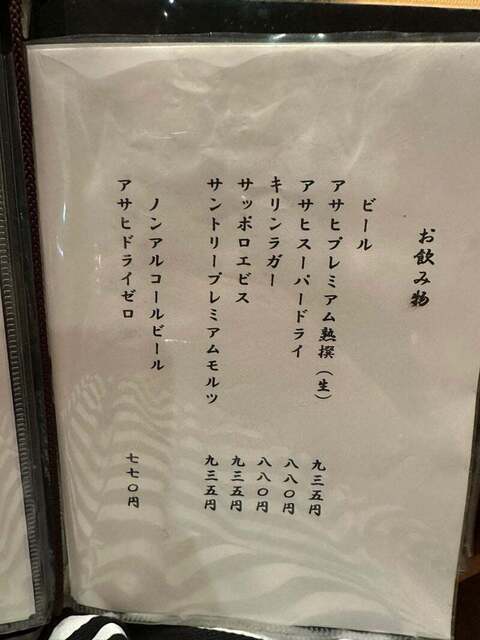 お飲み物
ビール
アサヒプレミアム熟撰（生） 九三五円
アサヒスーパードライ 八八〇円
キリンラガー 八八〇円
サッポロエビス 九三五円
サントリープレミアムモルツ 九三五円
ノンアルコールビール
アサヒドライゼロ 七七〇円